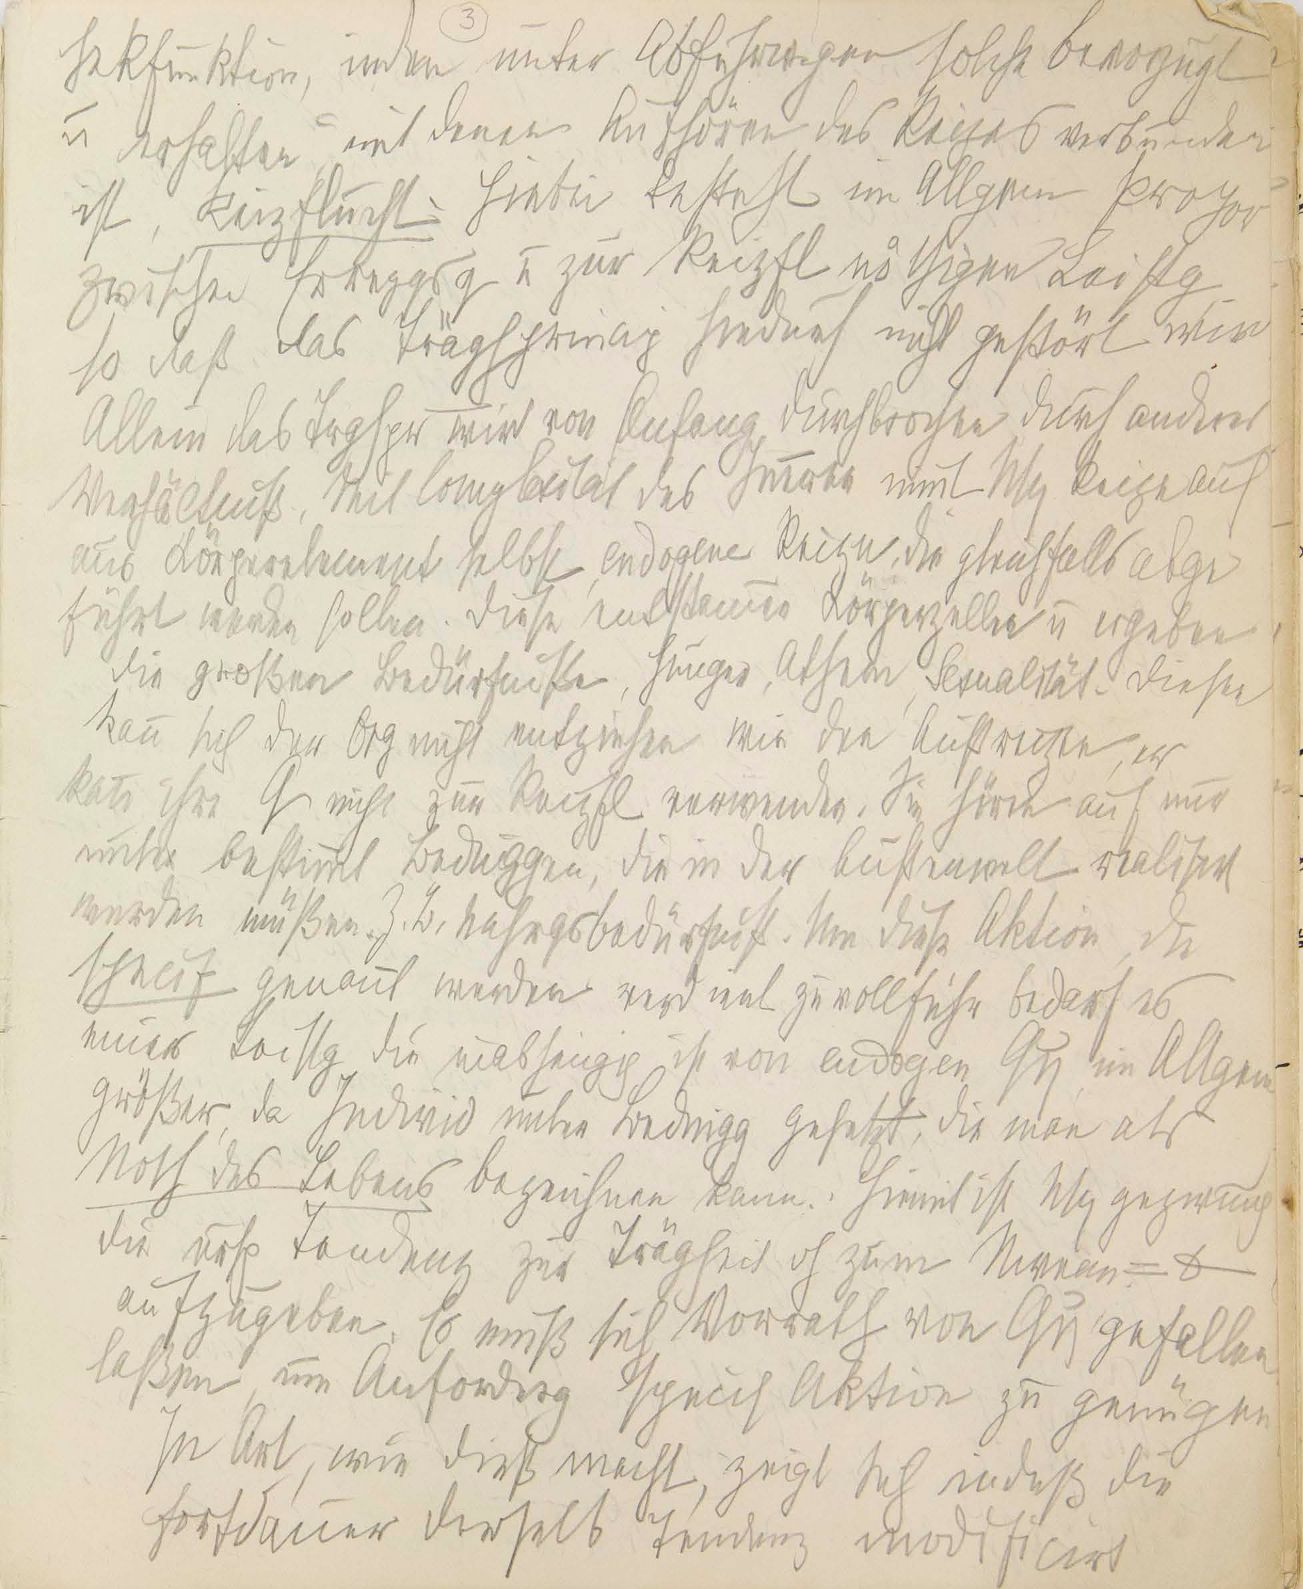 3
sekfunktion, indem unter Abfuhrwegen solche bevorzugt
u erhalten, mit denen Aufhören des Reizes verbunden
ist, Reizflucht. Hiebei besteht im Allgem Propor
zwischen Erreggsq u zur Reizfl nöthigen Leistg
so daß das Träghprincip hiedurch nicht gestört wird
Allein das Trghpr wird von Anfang durchbrochen durch anderes
Verhältniß. Mit Complexität des Inneren nimt Nsy Reize auf
aus Körperelement selbst, endogene Reize, die gleichfalls abge
führt werden sollen. Diese entstamen Körperzellen u ergeben
die großen Bedürfniße, Hunger, Athem, Sexualität. Diesen
kan sich der Org nicht entziehen wie den Außreizen, er
kan ihre Q nicht zur Reizfl verwenden. Sie hören auf nur
unter bestimt Bedinggen, die in der Außenwelt realisirt
werden müßen. Z. B. Nahrgsbedürfniß. Um diese Aktion, die
specif genant werden verdient zu vollführ bedarf es
einer Leistg die unabhängig ist von endogen Qη, im Allgem
größer, da Individ unter Bedingg gesetzt, die man als
Noth des Lebens bezeichnen kann. Hiemit ist Nsy gezwung
die ursp Tendenz zur Trägheit dh zum Niveau = 0
aufzugeben. Es muß sich Vorrath von Qη gefallen
laßen, um Anforderg specif Aktion zu genügen
In Art, wie dieß macht, zeigt sich indeß die
Fortdauer derselb Tendenz modificirt